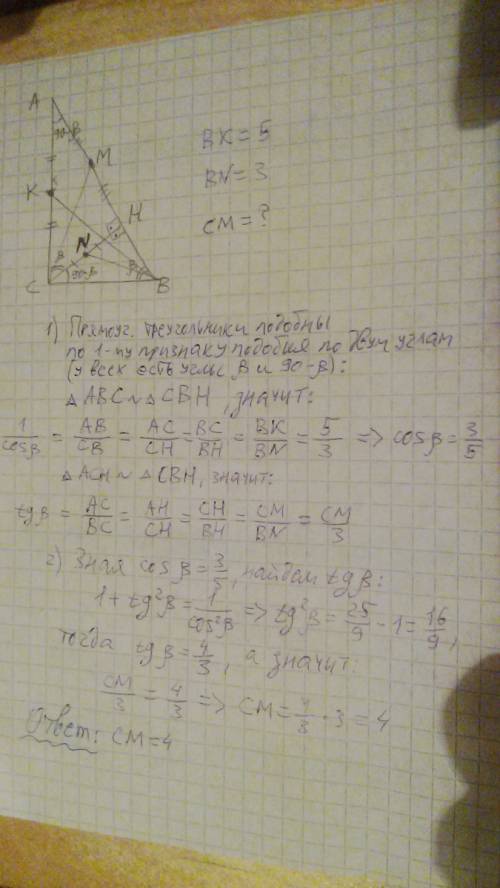 A
90-β
M
BK = 5
BN = 3
CM = ?
K
H
N
β
90-β
β
C
B
1) Прямоуг. треугольники подобны
по 1-му признаку подобия по двум углам
(у всех есть углы β и 90-β):
△ABC ~ △CBH, значит:
1/cosβ = AB/CB = AC/CH = BC/BH = BK/BN = 5/3 => cosβ = 3/5
△ACH ~ △CBH, значит:
tgβ = AC/BC = AH/CH = CH/BH = CM/BN = CM/3
2) Зная cosβ = 3/5, найдем tgβ:
1 + tg²β = 1/cos²β => tg²β = 25/9 - 1 = 16/9,
тогда tgβ = 4/3, а значит:
CM/3 = 4/3 => CM = 4/3 · 3 = 4
Ответ: CM = 4